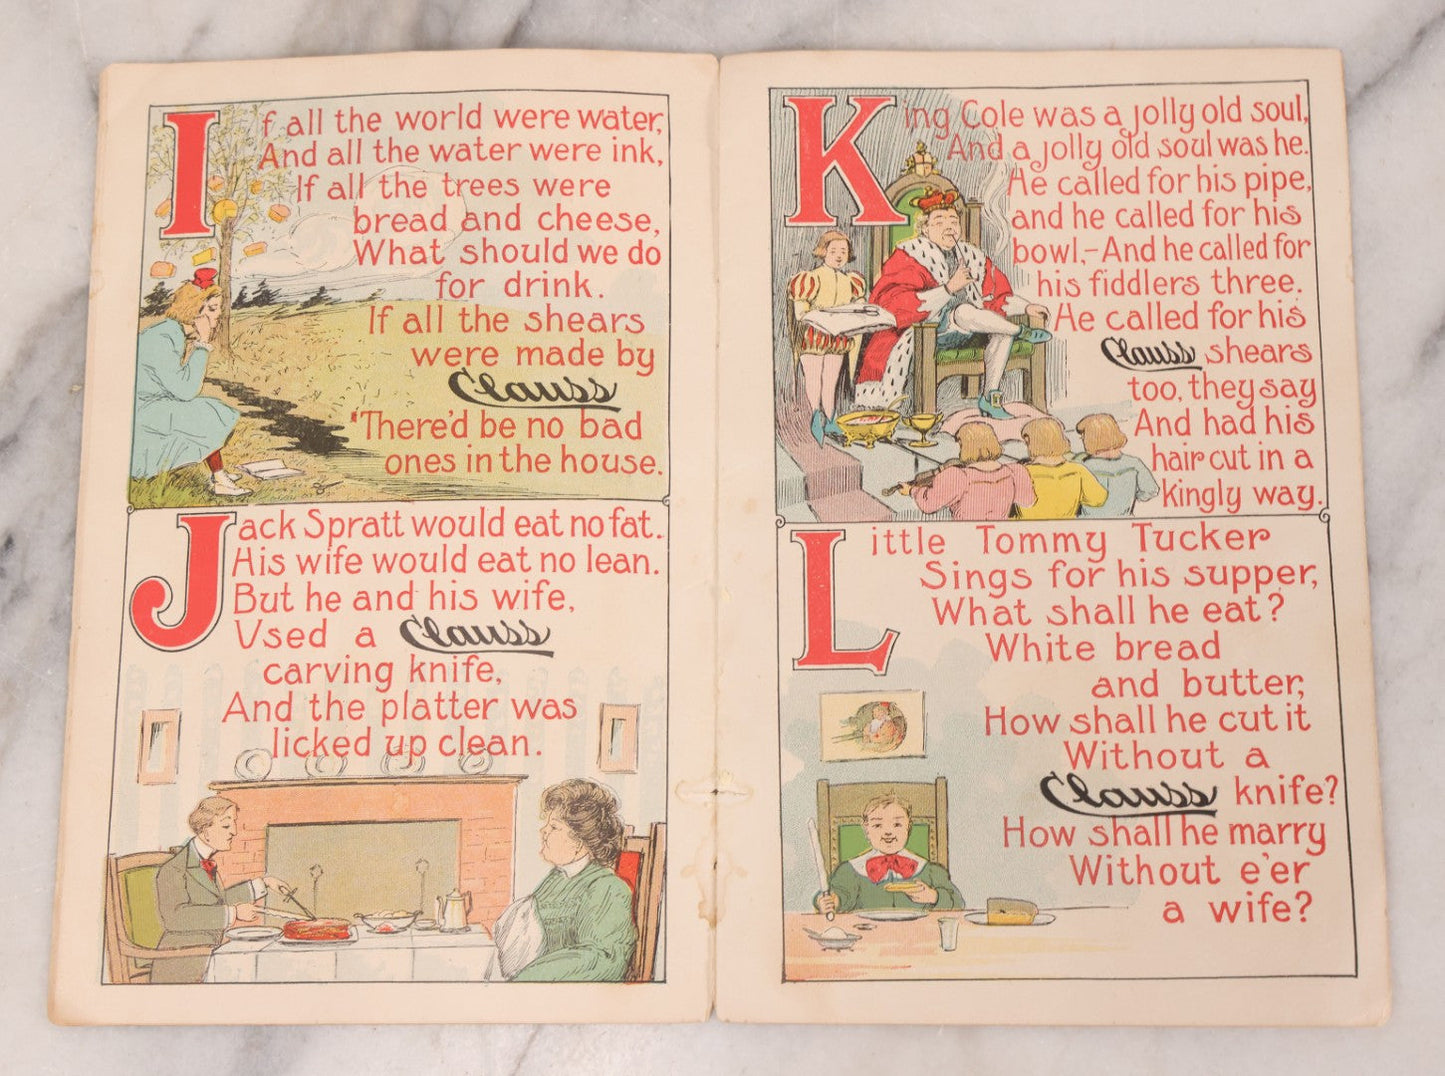 If all the world were water,
And all the water were ink,
If all the trees were
bread and cheese,
What should we do
for drink.
If all the shears
were made by
Clauss
"There'd be no bad
ones in the house.
Jack Spratt would eat no fat.
His wife would eat no lean.
But he and his wife,
Used a Clauss
carving knife,
And the platter was
licked up clean.
King Cole was a jolly old soul,
And a jolly old soul was he.
He called for his pipe,
and he called for his
bowl,-And he called for
his fiddlers three.
He called for his
Clauss shears
too, they say
And had his
hair cut in a
kingly way.
Little Tommy Tucker
Sings for his supper,
What shall he eat?
White bread
and butter,
How shall he cut it
Without a
Clauss knife?
How shall he marry
Without e'er
a wife?